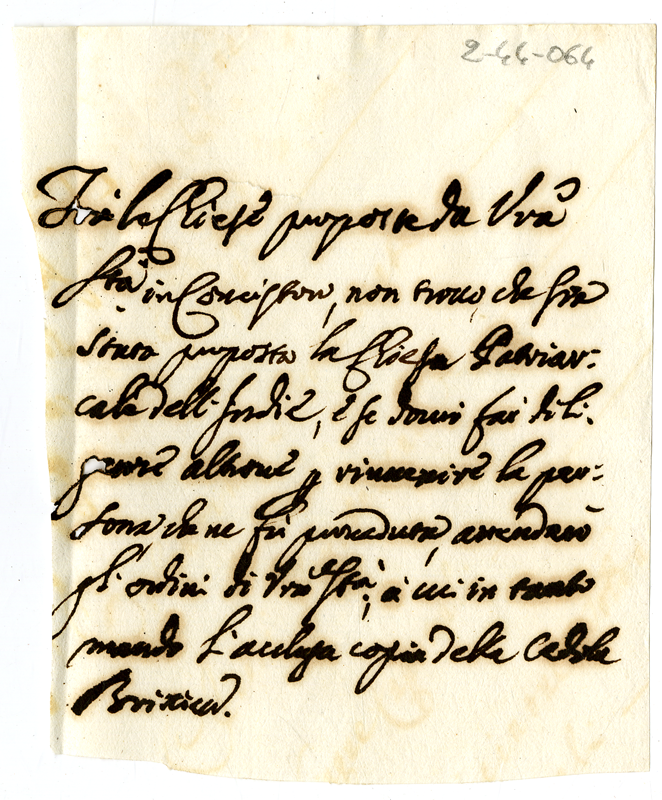 2-44-064
Frà le Chiese proposte da Vrã
Stà in Concistoro, non trovo, che sia
stata proposta la Chiesa Patriar-
cale dell'Indie, e se dovrò far dili-
genze altrove p rinvenire la per-
sona, che ne fù proveduta, attenderò
gl'ordini di Vrã Stà, à cui in tanto
mando l'acclusa copia della Cedola